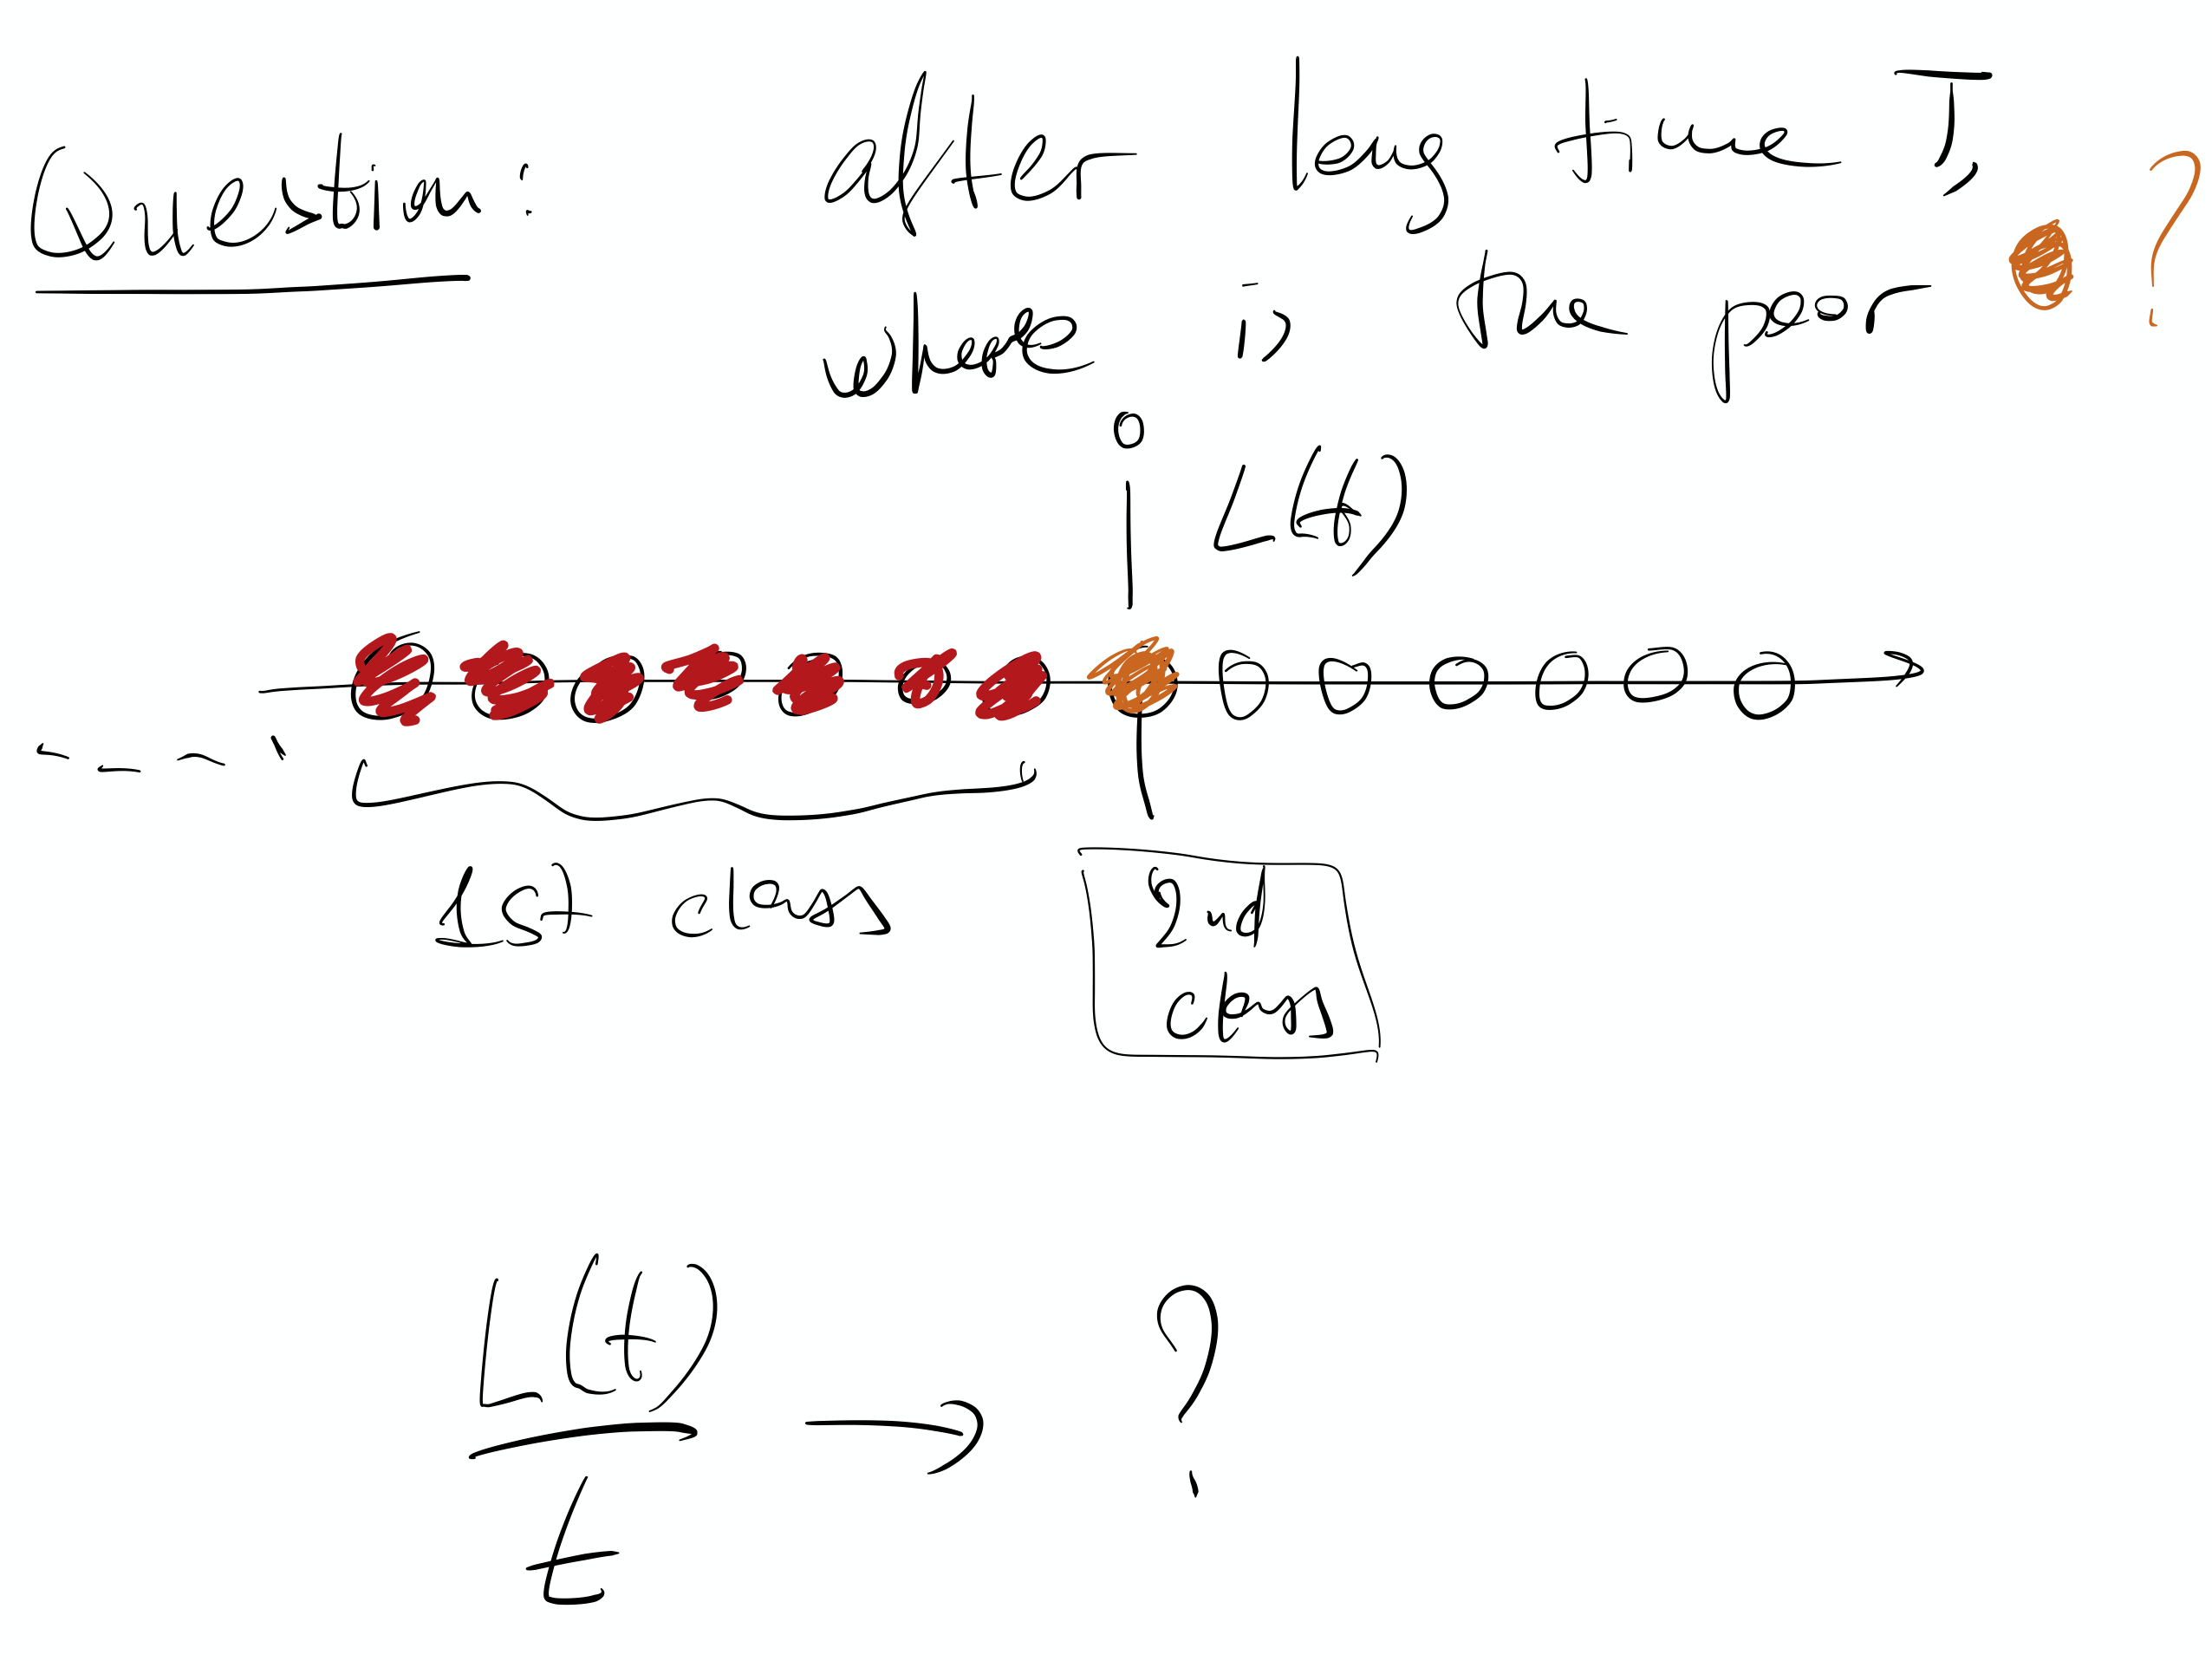 Question: after long time T,
where is the poor ?
0
L(t)
1st class
2nd
class
L(t)
t
→ ?